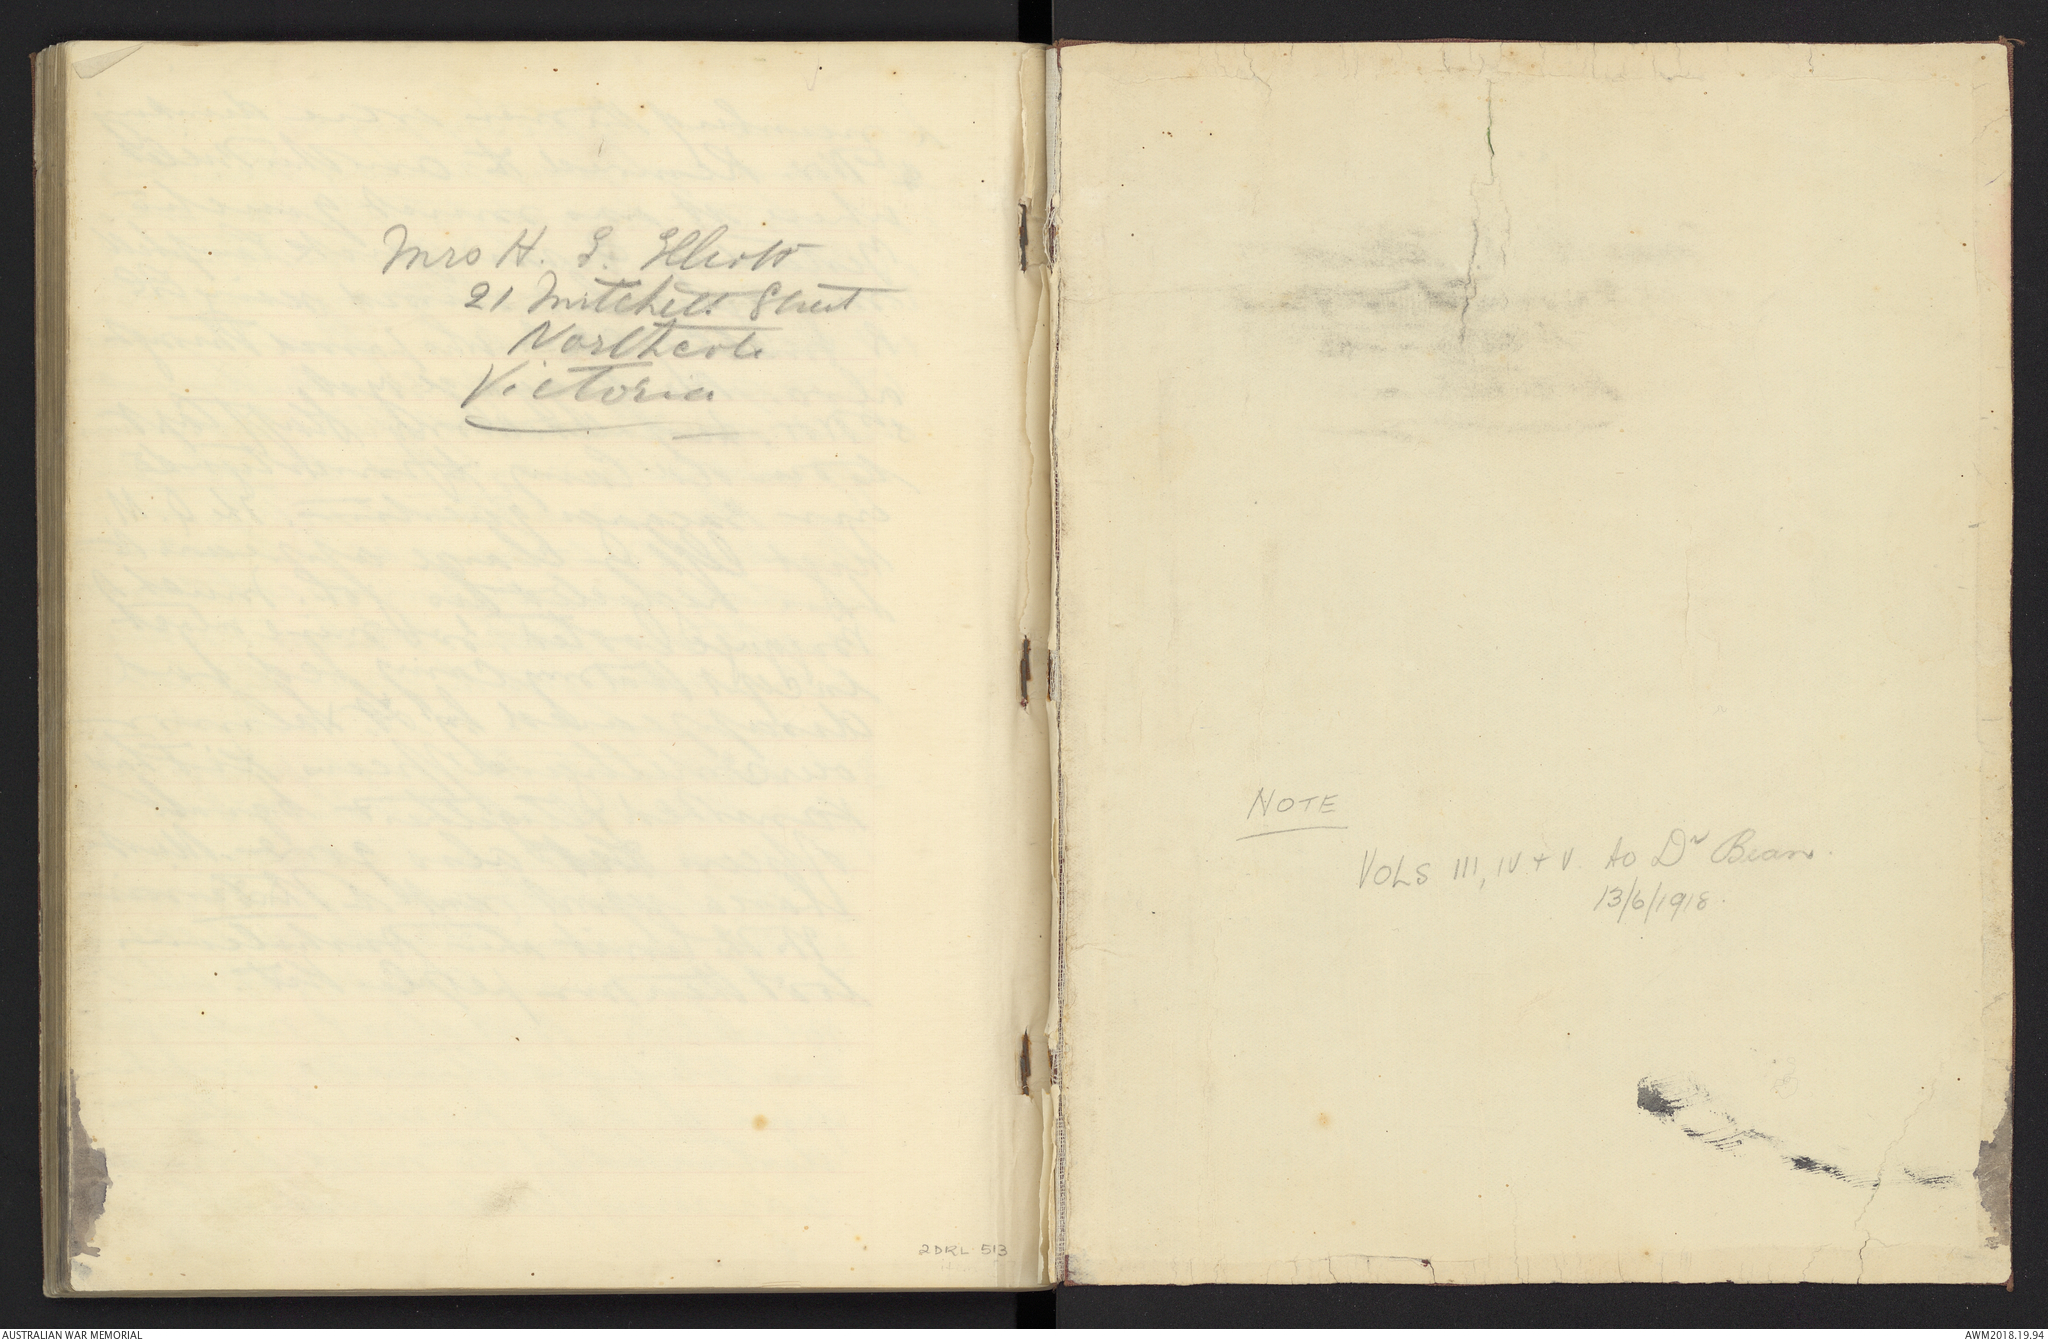 Mrs H. E. Elliott
21 Mitchell Street
Northcote
Victoria
2DRL 513
NOTE
VOLS III, IV + V. to Dr Bean.
13/6/1918.
AUSTRALIAN WAR MEMORIAL
AWM2018.19.94